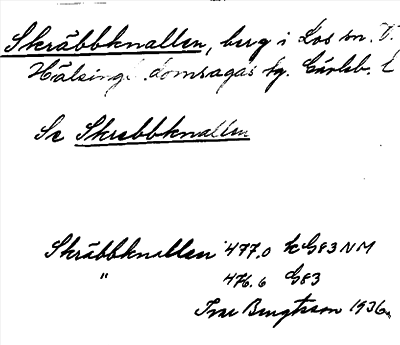 Skräbbknallen, berg i Los sn. V.
Hälsingl. domsagas tg. Gävleb. l
Se Skrebbknallen
Skräbbknallen 477,0 k G83 NM
" 476.6 G83
Ivar Bengtsson 1936